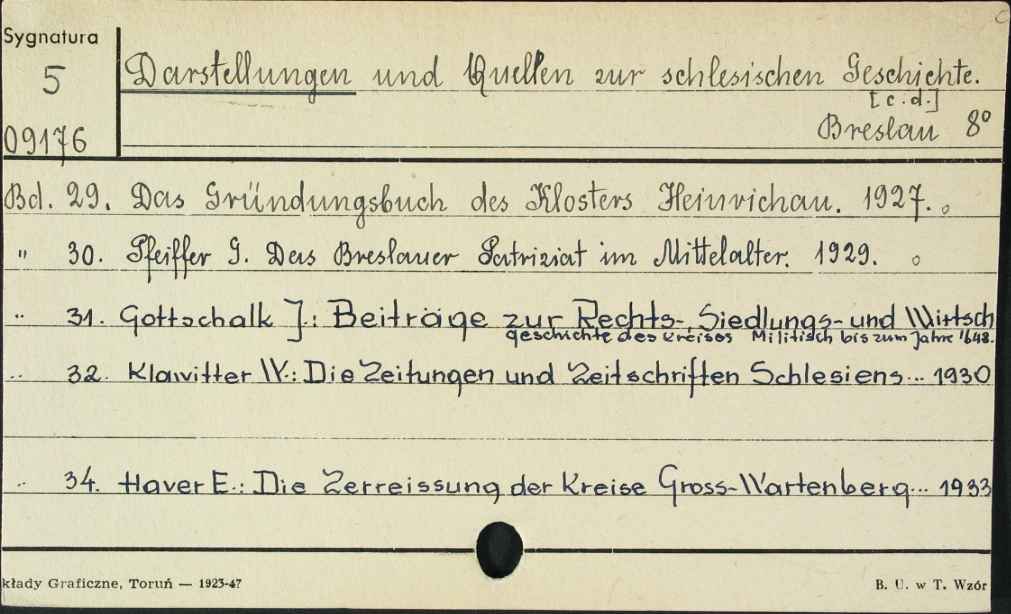 Sygnatura
5
09176
Darstellungen und Quellen zur schlesischen Geschichte.
[c.d.]
Breslau 8°
Bd. 29. Das Gründungsbuch des Klosters Heinrichau. 1927.
" 30. Pfeiffer G. Das Breslauer Patriziat im Mittelalter. 1929.
" 31. Gottschalk J.: Beiträge zur Rechts-, Siedlungs- und Wirtsch
geschichte des Kreises Militsch bis zum Jahre 1648.
" 32. Klawitter W.: Die Zeitungen und Zeitschriften Schlesiens... 1930
" 34. Haver E.: Die Zerreissung der Kreise Gross-Wartenberg... 1933
kłady Graficzne, Toruń — 1923-47
B. U. w T. Wzór